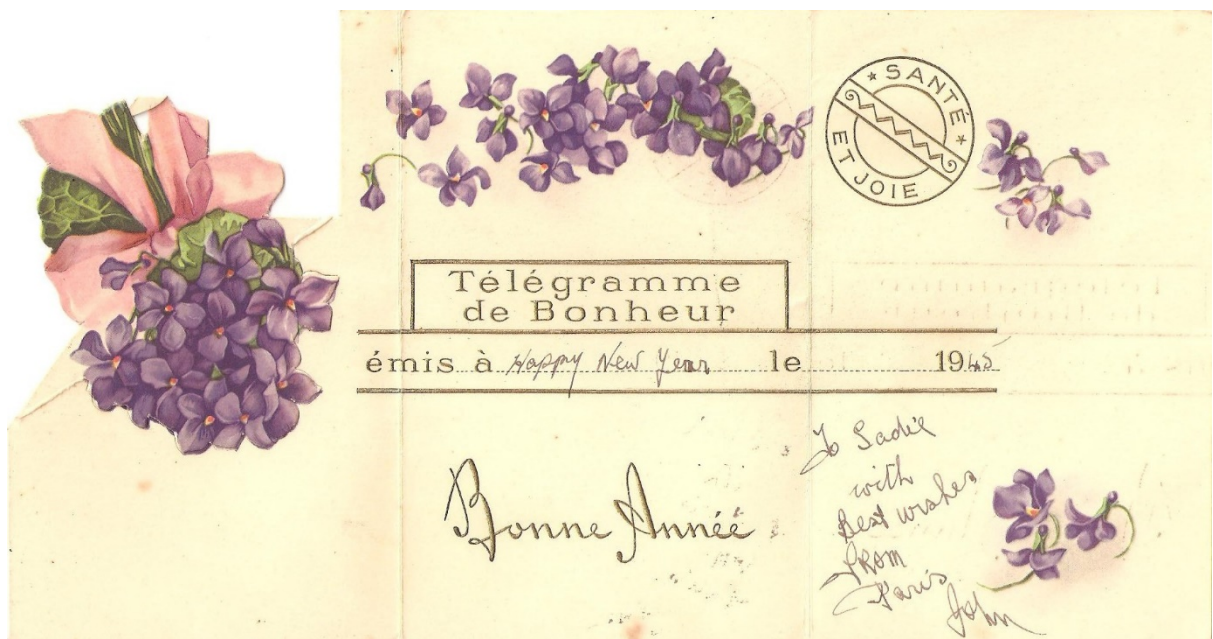 SANTÉ
ET JOIE
Télégramme
de Bonheur
émis à Happy New Year le 1945
Bonne Année
To Sadie
with
Best wishes
FROM
Paris
John